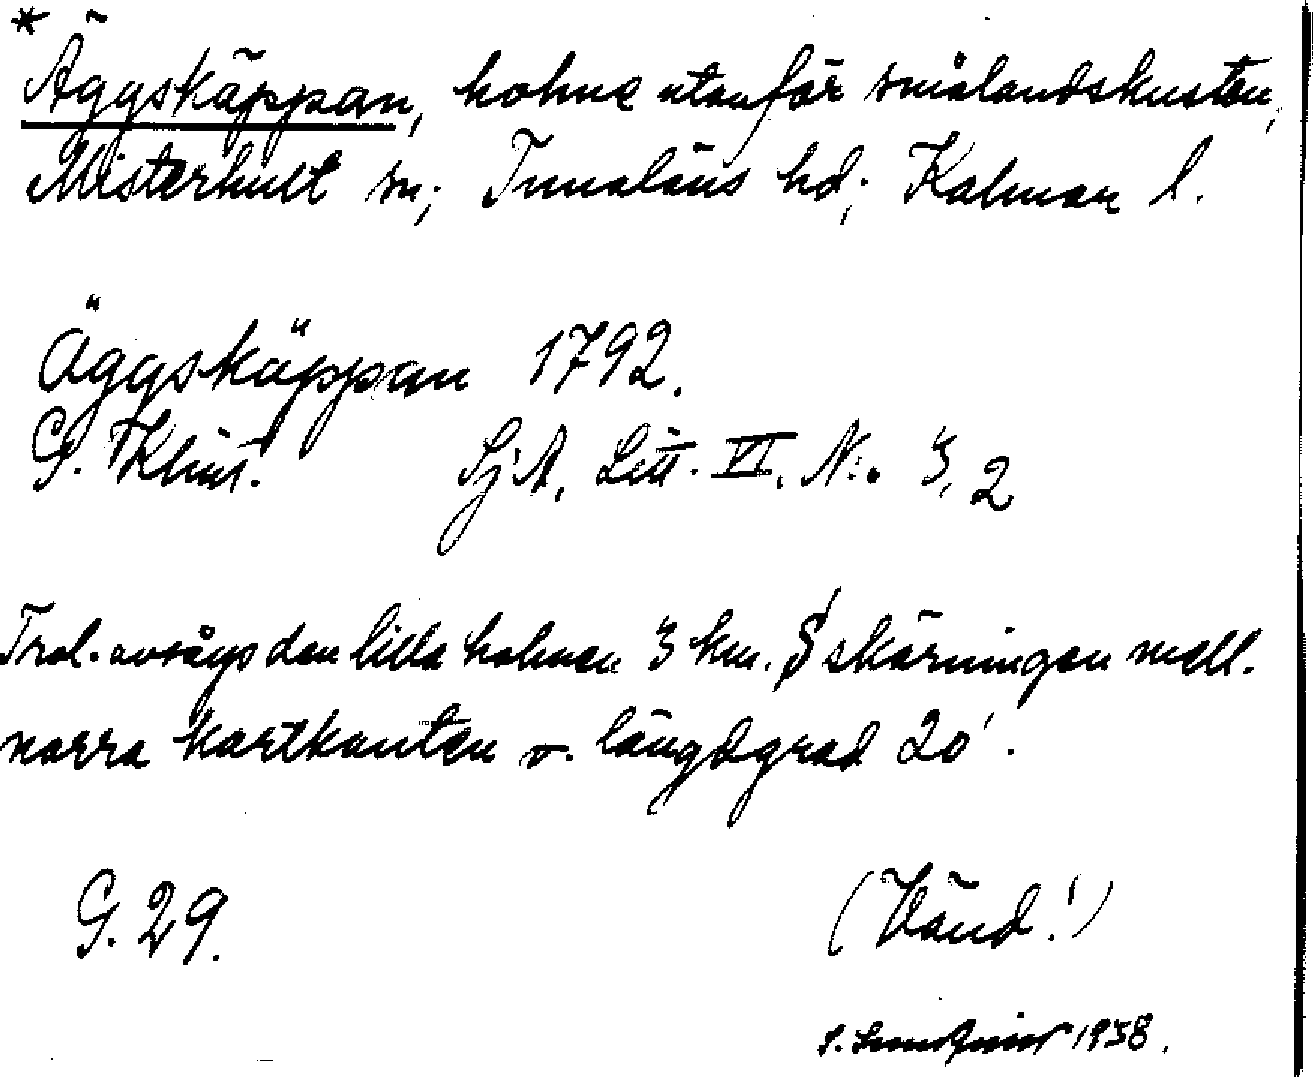 *
Äggskäppan, holme utanför smålandskusten,
Misterhult sn; Tunaläns hd; Kalmar l.
Äggskäppan 1792.
G. Klint. SjA, Litt. VI. N:o 3, 2
Trol. avsågs den lilla holmen 3 km. S skärningen mell.
norra kartkanten o. längdgrad 20'.
G. 29.
(Vänd!)
S. 1938.